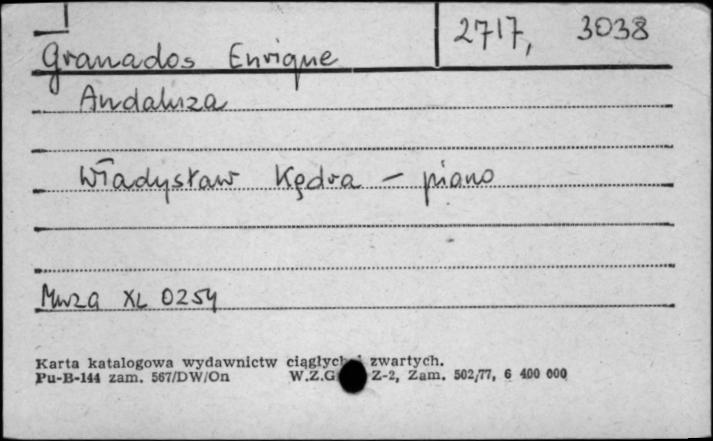 2717, 3038
Granados Enrique
Andaluza
Władysław Kędra - piano
Muza XL 0254
Karta katalogowa wydawnictw ciągłych i zwartych.
Pu-B-144 zam. 567/DW/On W.Z.G. Z-2, Zam. 502/77, 6 400 000